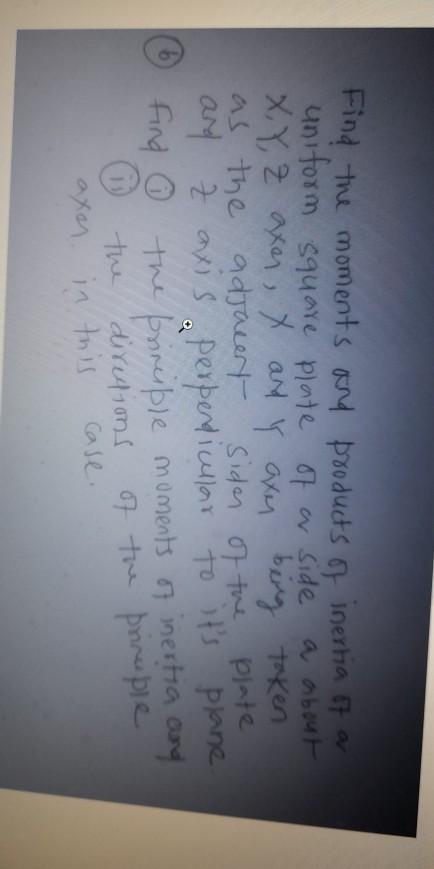 Find the moments and products of inertia of a
uniform square plate of a side a about
X, Y, Z axes, X and Y axes being taken
as the adjacent sides of the plate
and Z axis perpendicular to it's plane.
(b) find (i) the principle moments of inertia and
(ii) the directions of the principle
axes in this case.